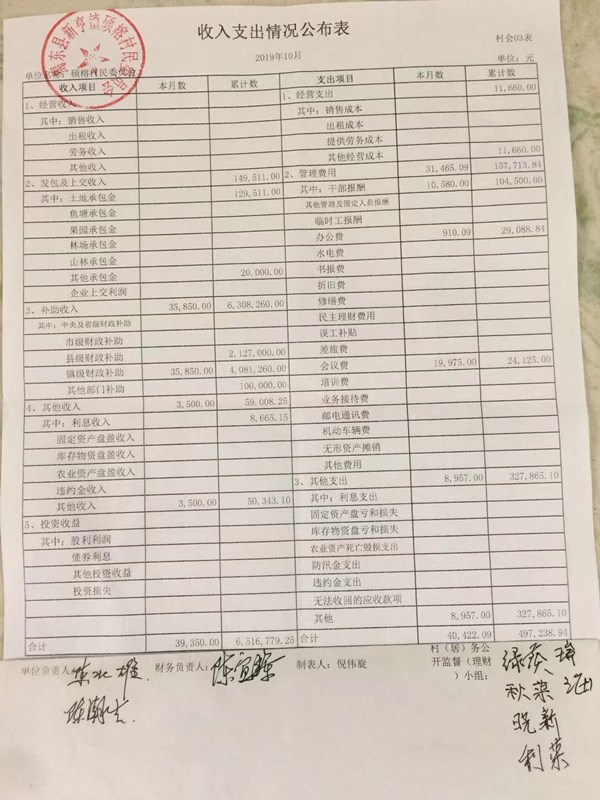 收入支出情况公布表
村会03表
2019年10月
单位：元
揭东县新亨镇硕榕村民委员会
单位名称：硕榕村民委员会
收入项目 本月数 累计数 支出项目 本月数 累计数
1、经营收入 1、经营支出 11,660.00
其中：销售收入 其中：销售成本
出租收入 出租成本
劳务收入 提供劳务成本
其他收入 其他经营成本 11,660.00
2、发包及上交收入 149,511.00 2、管理费用 31,465.09 157,713.84
其中：土地承包金 129,511.00 其中：干部报酬 10,580.00 104,500.00
鱼塘承包金 其他管理及固定人员报酬
果园承包金 临时工报酬
林场承包金 办公费 910.09 29,088.84
山林承包金 水电费
其他承包金 20,000.00 书报费
企业上交利润 折旧费
3、补助收入 35,850.00 6,308,260.00 修缮费
其中：中央及省级财政补助 民主理财费用
市级财政补助 误工补贴
县级财政补助 2,127,000.00 差旅费
镇级财政补助 35,850.00 4,081,260.00 会议费 19,975.00 24,125.00
其他部门补助 100,000.00 培训费
4、其他收入 3,500.00 59,008.25 业务接待费
其中：利息收入 8,665.15 邮电通讯费
固定资产盘盈收入 机动车辆费
库存物资盘盈收入 无形资产摊销
农业资产盘盈收入 其他费用
违约金收入 3、其他支出 8,957.00 327,865.10
其他收入 3,500.00 50,343.10 其中：利息支出
5、投资收益 固定资产盘亏和损失
其中：股利利润 库存物资盘亏和损失
债券利息 农业资产死亡毁损支出
其他投资收益 防汛金支出
投资损失 违约金支出
无法收回的应收款项
其他 8,957.00 327,865.10
合计 39,350.00 6,516,779.25 合计 40,422.09 497,238.94
单位负责人： 财务负责人： 制表人：倪伟旋 村（居）务公
开监督（理财
）小组：
秋菜
晓新
利菜